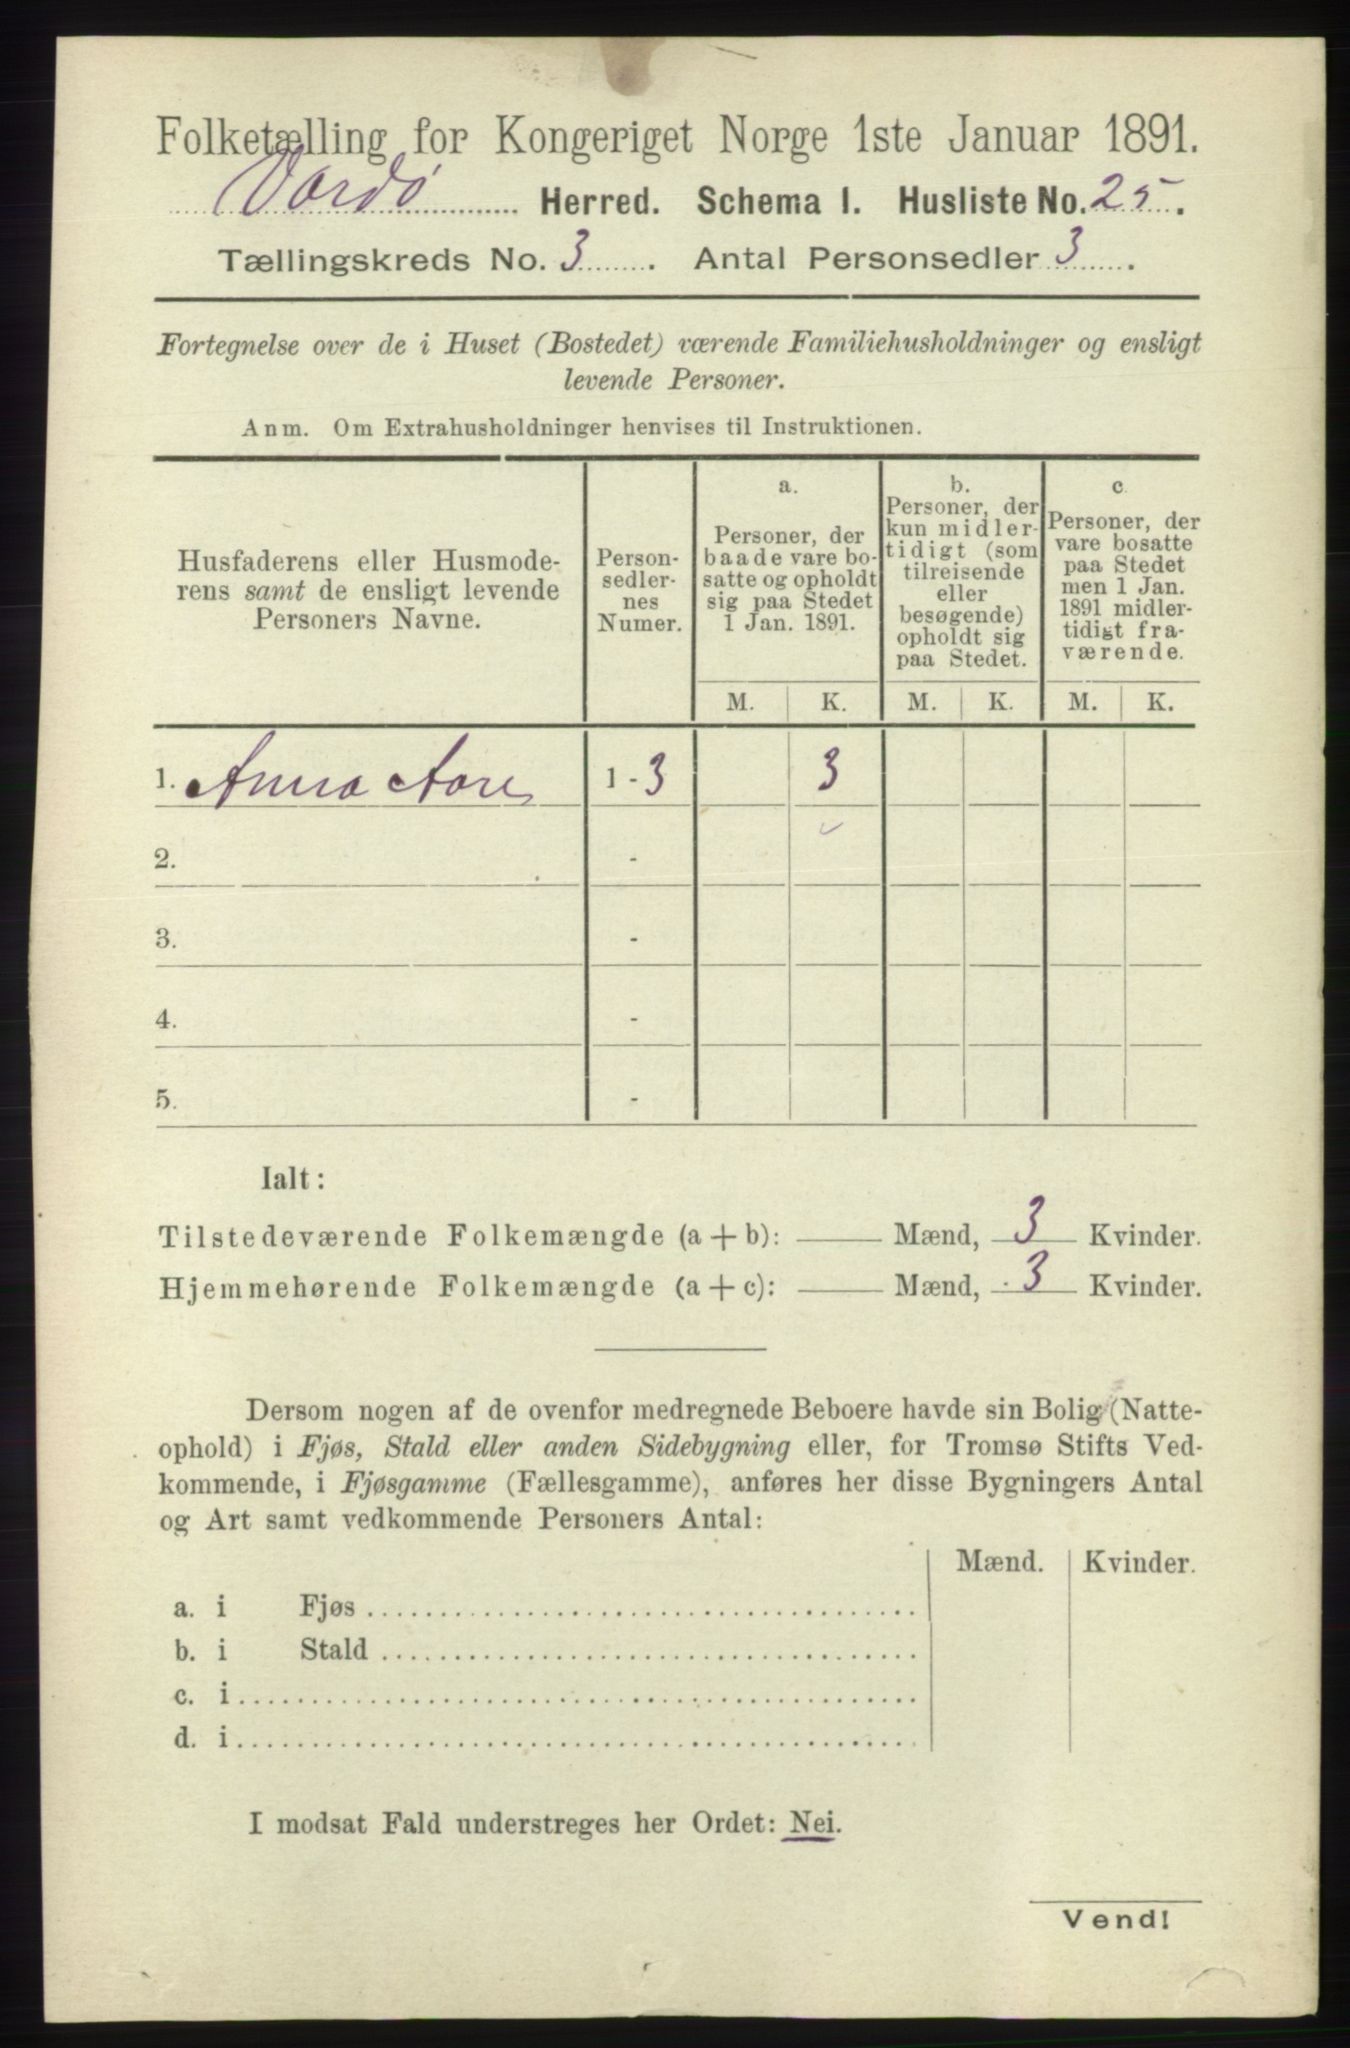 Folketælling for Kongeriget Norge 1ste Januar 1891.
Vardø Herred. Schema I. Husliste No. 25.
Tællingskreds No. 3. Antal Personsedler 3.
Fortegnelse over de i Huset (Bostedet) værende Familiehusholdninger og ensligt
levende Personer.
Anm. Om Extrahusholdninger henvises til Instruktionen.
Husfaderens eller Husmode-
rens samt de ensligt levende
Personers Navne.
Person-
sedler-
nes
Numer.
a.
Personer, der
baade vare bo-
satte og opholdt
sig paa Stedet
1 Jan. 1891.
b.
Personer, der
kun midler-
tidigt (som
tilreisende
eller
besøgende)
opholdt sig
paa Stedet.
c.
Personer, der
vare bosatte
paa Stedet
men 1 Jan.
1891 midler-
tidigt fra-
værende.
M. K. M. K. M. K.
1. Anna 1 - 3 3
2. -
3. -
4. -
5. -
Ialt:
Tilstedeværende Folkemængde (a + b): Mænd, 3 Kvinder.
Hjemmehørende Folkemængde (a + c): Mænd, 3 Kvinder.
Dersom nogen af de ovenfor medregnede Beboere havde sin Bolig (Natte-
ophold) i Fjøs, Stald eller anden Sidebygning eller, for Tromsø Stifts Ved-
kommende, i Fjøsgamme (Fællesgamme), anføres her disse Bygningers Antal
og Art samt vedkommende Personers Antal:
Mænd. Kvinder.
a. i Fjøs
b. i Stald
c. i
d. i
I modsat Fald understreges her Ordet: Nei.
Vend!